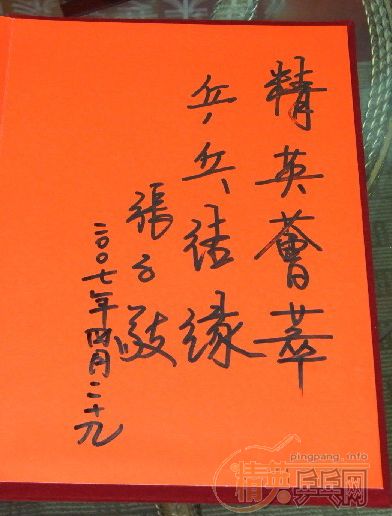 精英薈萃
乒乓结缘
張子敬
二〇〇七年四月二十九
pingpang.info
精英乒乓网